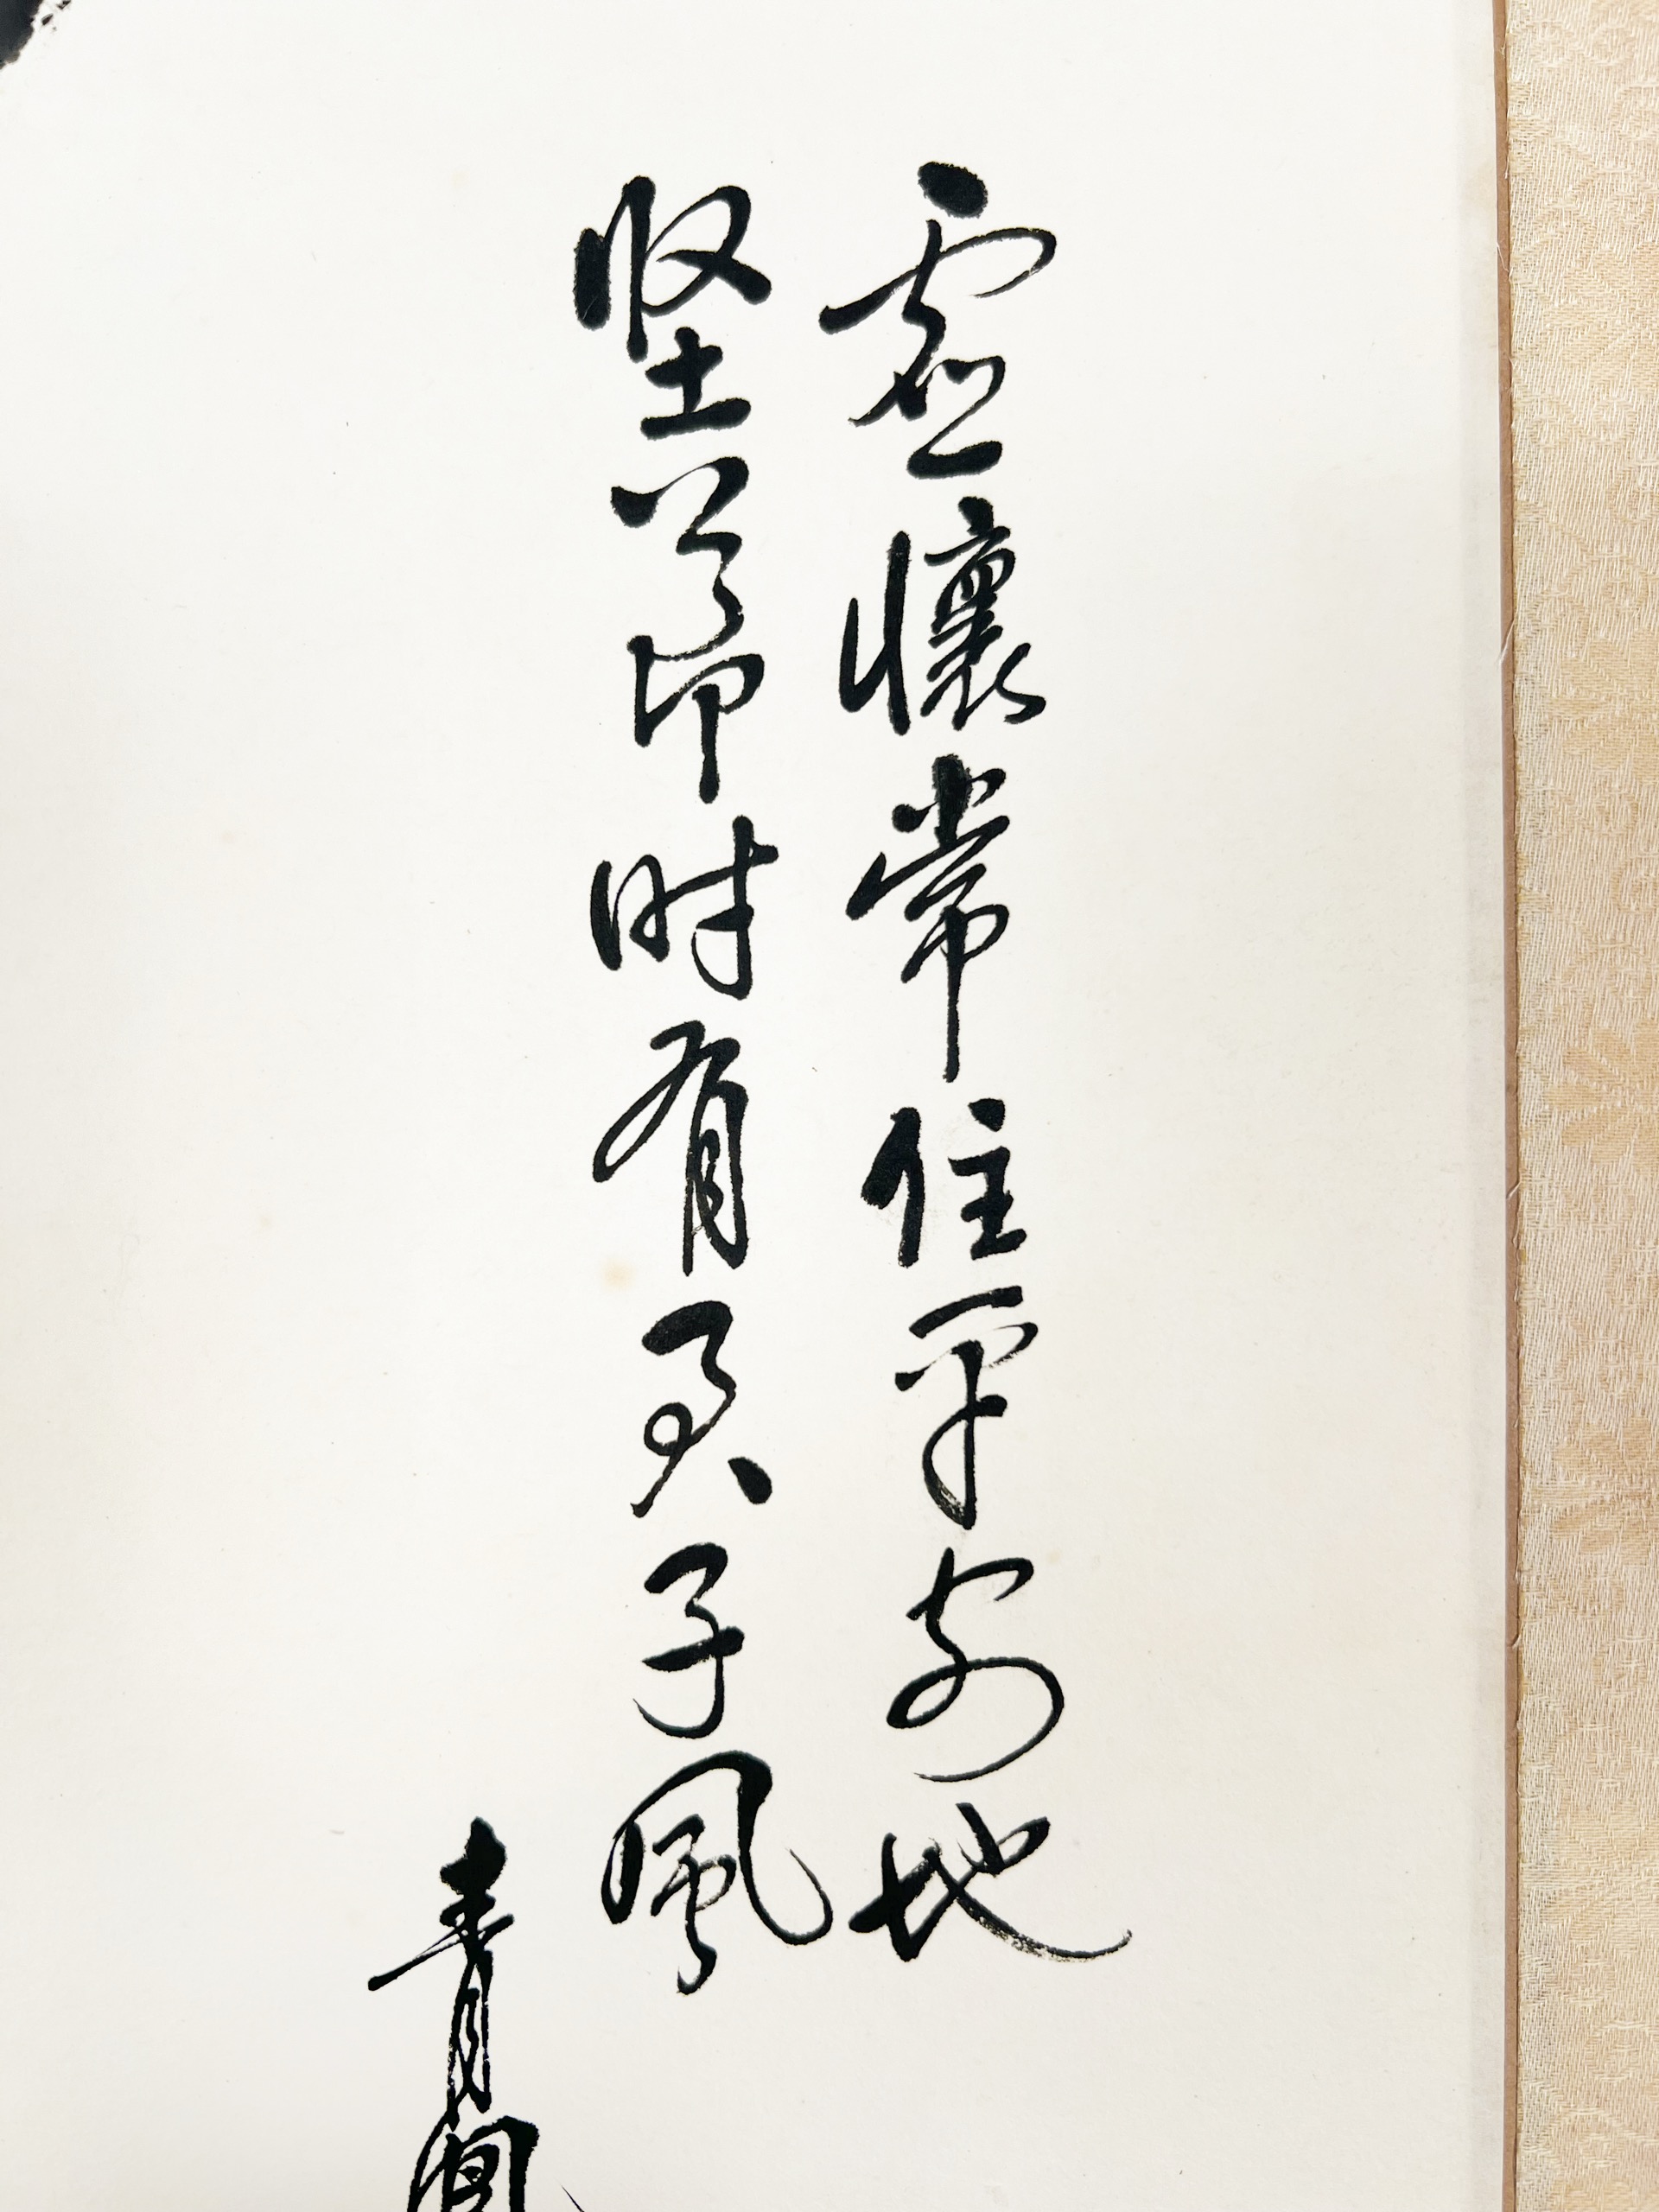 虛懷常住平安地
堅節時有君子風
青